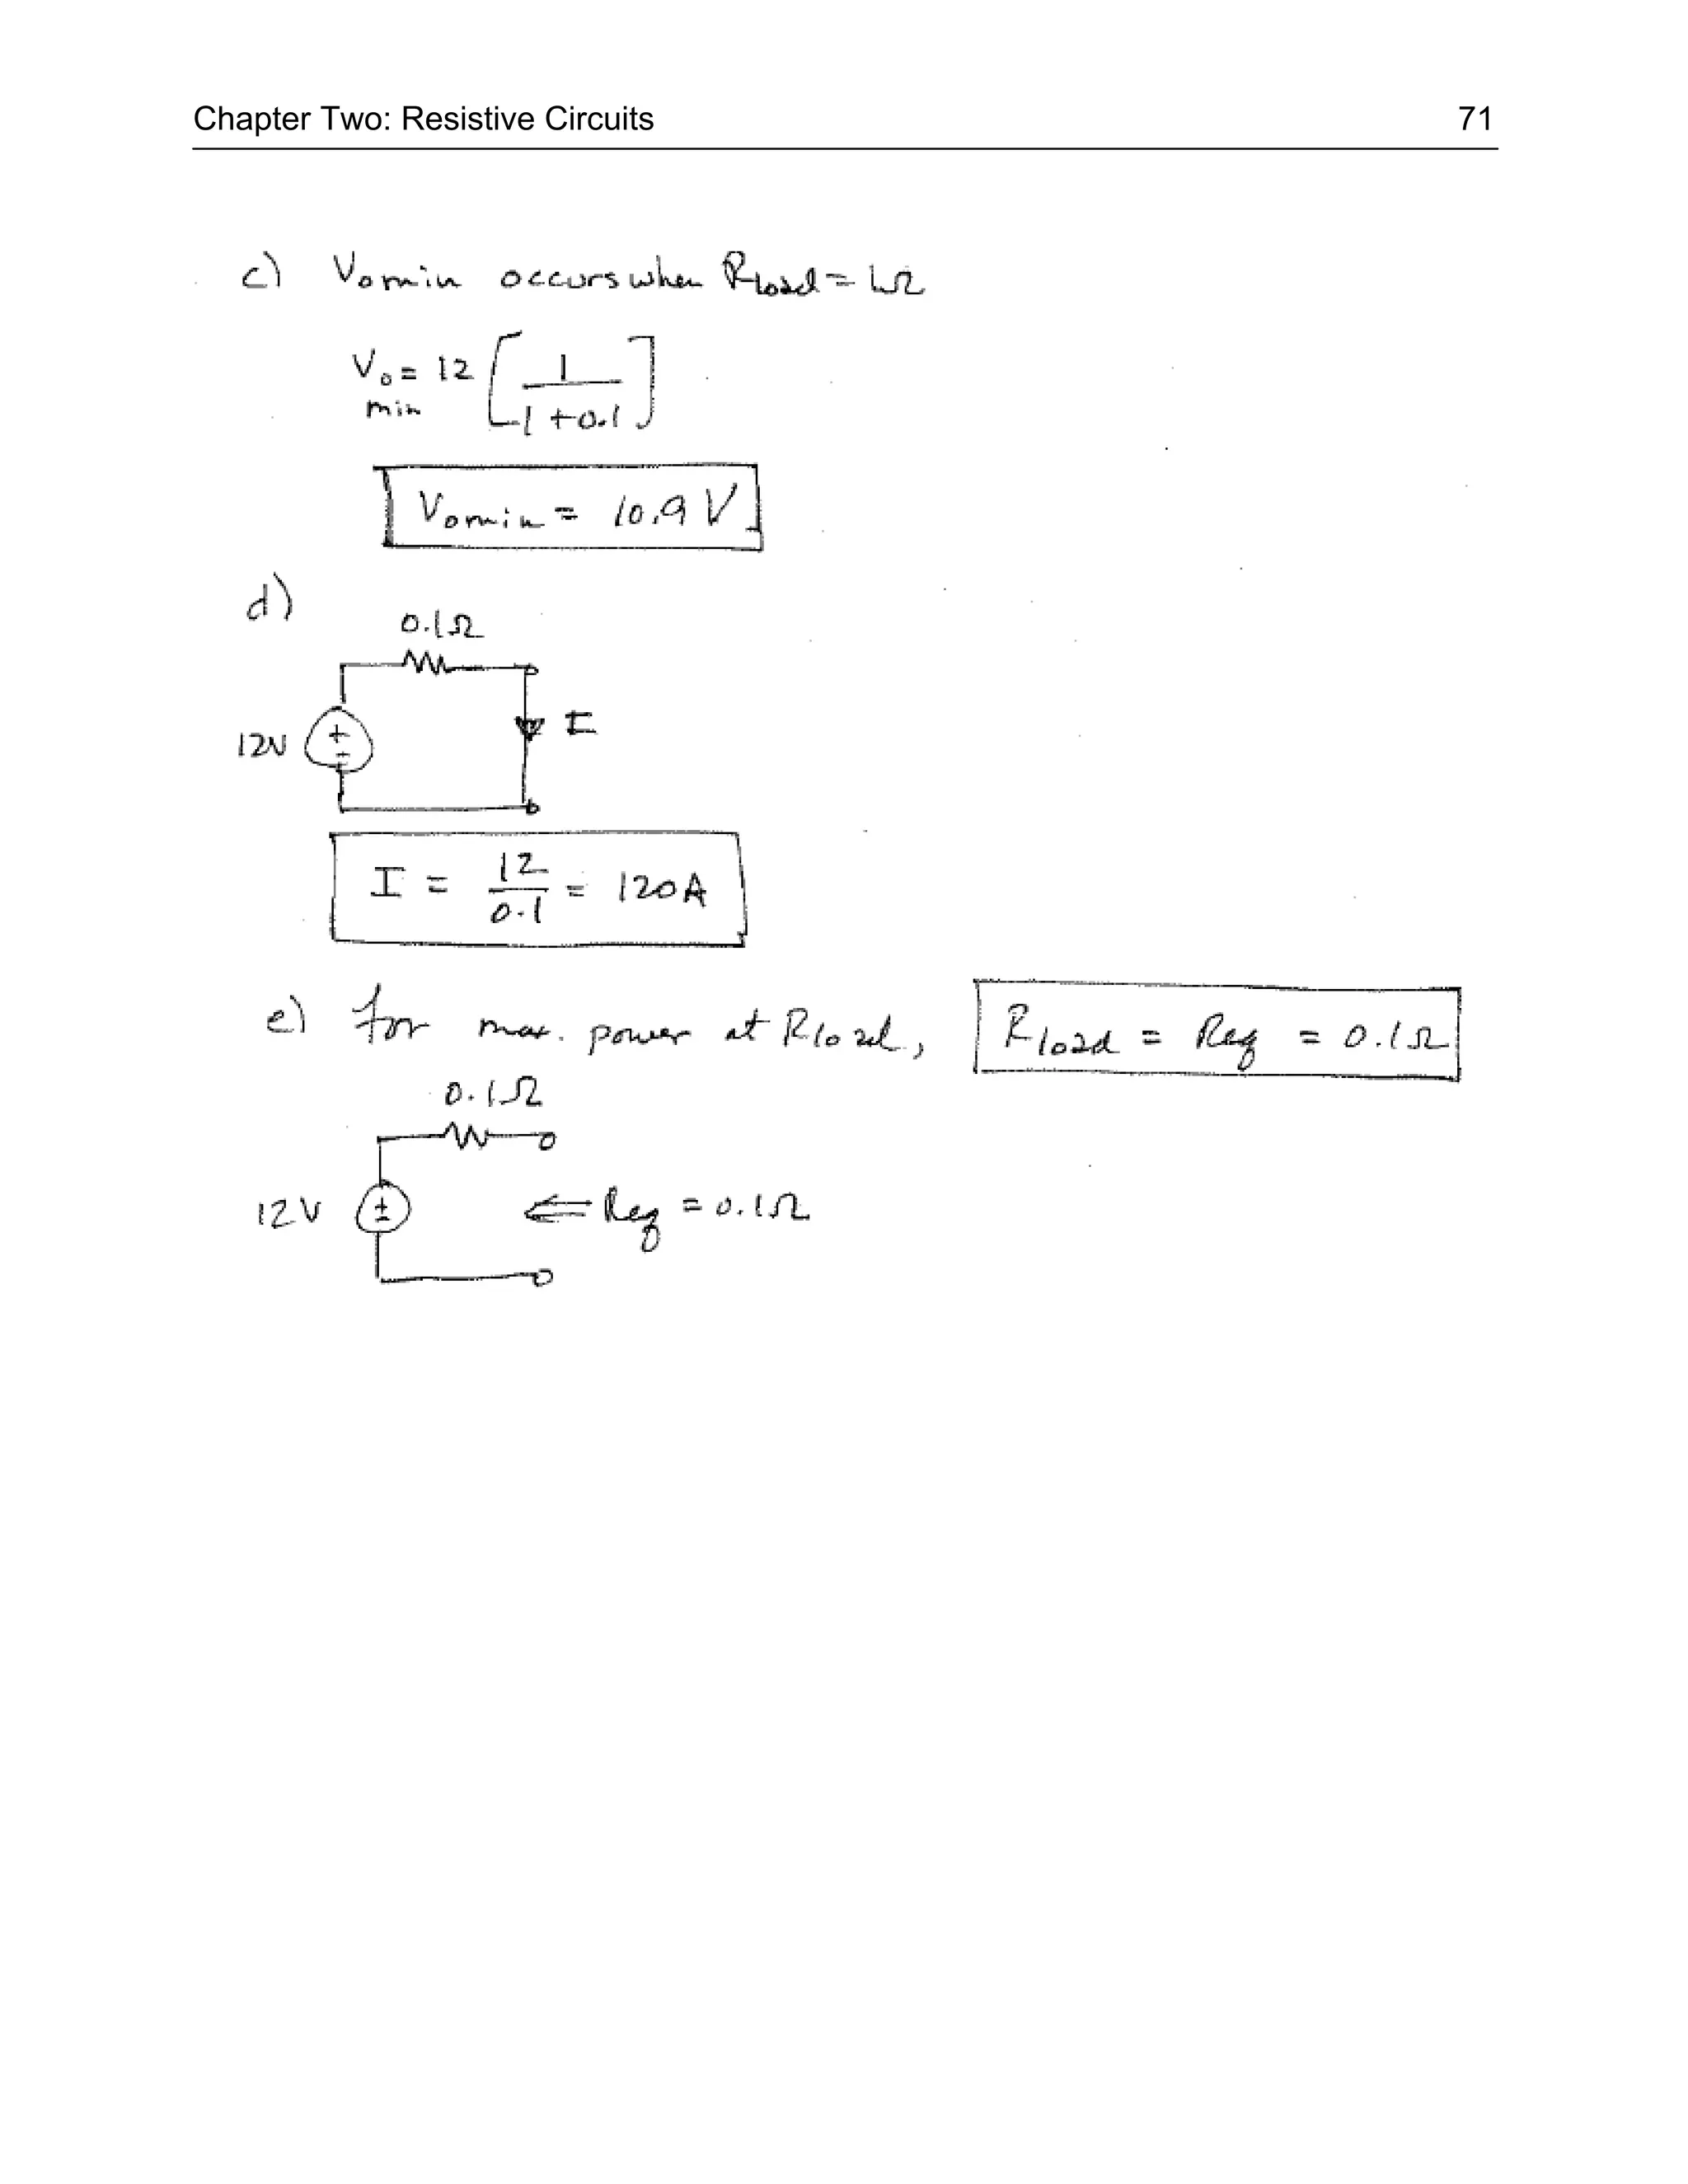 Chapter Two: Resistive Circuits 71
c) Vomin occurs when Rload = 1Ω
Vo min = 12 [ 1 / (1 + 0.1) ]
Vomin = 10.9 V
d)
0.1Ω
12V + - I
I = 12 / 0.1 = 120A
e) for max. power at Rload, Rload = Req = 0.1Ω
0.1Ω
12V ± ⇐ Req = 0.1Ω